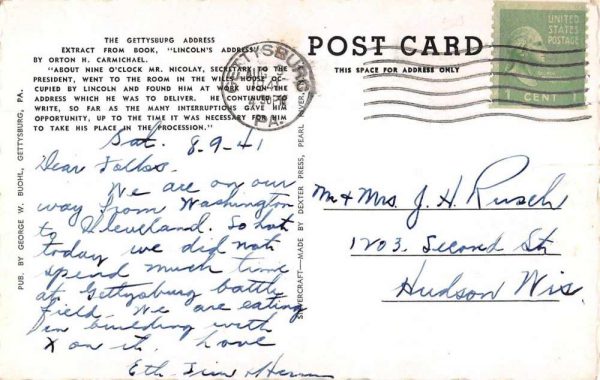 THE GETTYSBURG ADDRESS
EXTRACT FROM BOOK, "LINCOLN'S ADDRESS,"
BY ORTON H. CARMICHAEL.
"ABOUT NINE O'CLOCK MR. NICOLAY, SECRETARY TO THE
PRESIDENT, WENT TO THE ROOM IN THE WILLS HOUSE OC-
CUPIED BY LINCOLN AND FOUND HIM AT WORK UPON THE
ADDRESS WHICH HE WAS TO DELIVER. HE CONTINUED TO
WRITE, SO FAR AS THE MANY INTERRUPTIONS GAVE HIM
OPPORTUNITY, UP TO THE TIME IT WAS NECESSARY FOR HIM
TO TAKE HIS PLACE IN THE PROCESSION."
Sat. 8-9-41
Dear Folks.
We are on our
way from Washington
to Cleveland. So hot
today we did not
spend much time
at Gettysburg battle
field. We are eating
in building with
X on it. Love
Eth Jim & Herm
PUB. BY GEORGE W. BUOHL, GETTYSBURG, PA.
SILVERCRAFT—MADE BY DEXTER PRESS, PEARL RIVER,
GETTYSBURG
AUG
PA.
POST CARD
THIS SPACE FOR ADDRESS ONLY
UNITED
STATES
POSTAGE
1 CENT
Mr & Mrs. J. H. Rusch
1203. Second St.
Hudson Wis.